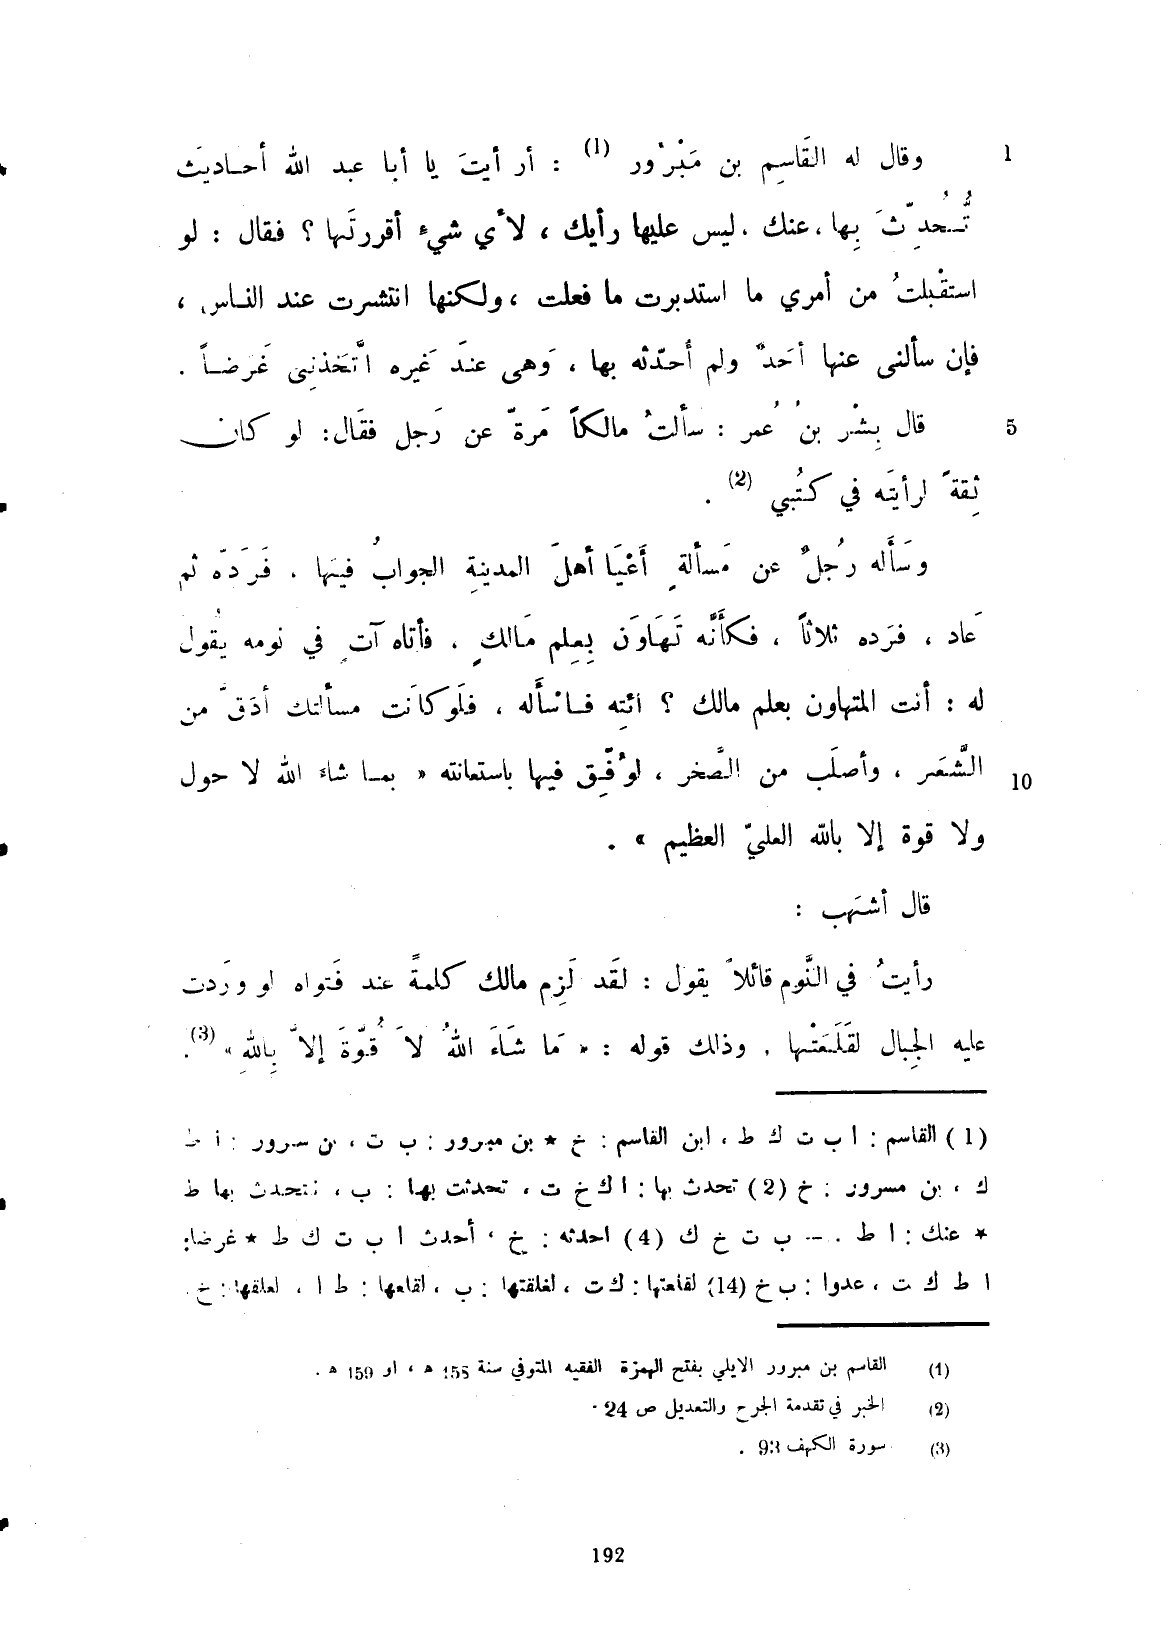 1 وقال له القَاسِم بن مَبْرُور (1) : أر أيتَ يا أبا عبد الله أحـاديثَ
تُـحُدِّثَ بِها ، عنك . ليس عليها رأيك ، لأي شيء أقررتَها ؟ فقال : لو
استقْبلتُ من أمري ما استدبرت ما فعلت ، ولكنها انتشرت عند النـاس ،
فإن سألنى عنها أحَدٌ ولم أحدّثه بها ، وَهى عندَ غَيره اتَّخَذنِى غَرضـاً .
5 قال بِشْر بنُ عُمر : سألتُ مالكاً مَرةً عن رَجل فقَال : لو كان
ثِقةً لرأيتَه في كتُبي (2) .
وسَأَله رجُلٌ عن مَسألةٍ أَعْيَا أهلَ المدينةِ الجوابُ فيهَا . فَرَدّه ثم
عَاد ، فرَده ثلاثاً ، فكأَنَّه تَهَاوَن بِعِلم مَالكٍ . فأتاه آتٍ في نومه يقُول
له : أنت المتهاون بعلم مالك ؟ ائتِه فـاسْأَله ، فلَو كاَنت مسألتك أدَقَّ من
10 الشَّعَر ، وأصلَب من الصَّخر ، لوُفِّق فيها باستعانته « بمـا شاءَ الله لا حول
ولا قوة إلا بالله العليّ العظيم » .
قال أشهَب :
رأيتُ في النَّوم قائلاً يقول : لقَد لَزِم مالك كلمةً عند فَتواه لو ورَدت
عليه الجِبال لقَلَعَتْها . وذلك قوله : « مَا شَاءَ اللهُ لاَ قُوّةَ إلاَّ بِاللهِ » (3).
(1) القاسم : ا ب ت ك ط ، ابن القاسم : خ * بن مبرور : ب ت ، بن سرور : ا ط
ك ، بن مسرور : خ (2) تحدث بها : ا ك خ ت ، تحدثت بها : ب ، نتحدث بها ط
* عنك : ا ط . -- ب ت خ ك (4) احدثه : خ ، أحدث ا ب ت ك ط * غرضا :
ا ط ك ت ، عدوا : ب خ (14) لقلعتها : ك ت ، لغلقتها : ب ، لقلعها : ط ا ، لعلقها : خ .
(1) القاسم بن مبرور الايلي بفتح الهمزة الفقيه المتوفي سنة 158 ه ، او 159 ه .
(2) الخبر في تقدمة الجرح والتعديل ص 24 .
(3) سورة الكهف 93 .
192